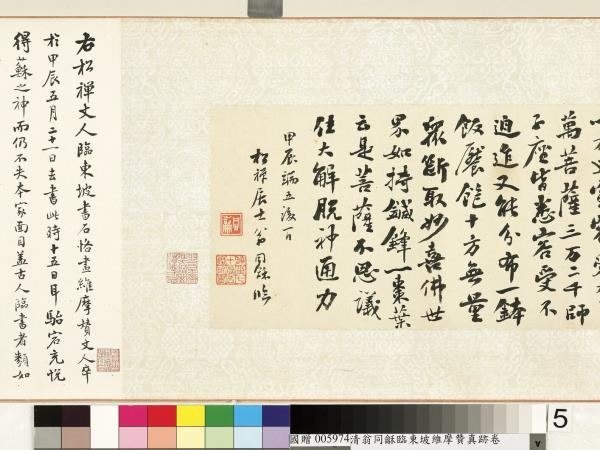 萬菩薩三万二千師
子座皆悉容受不
迫迮又能分布一鉢
飯饜飽十方無量
眾斷取妙喜佛世
界如持鍼鋒一棗葉
云是菩薩不思議
住大解脫神通力
甲辰端五後一日
松禪居士翁同龢臨
右松禪丈人臨東坡書石恪畫維摩贊丈人卒
於甲辰五月二十一日去書此時十五日耳駘宕充悅
得蘇之神而仍不失本家面目蓋古人臨書者類如
5
國贈 005974清翁同龢臨東坡維摩贊真跡卷
A